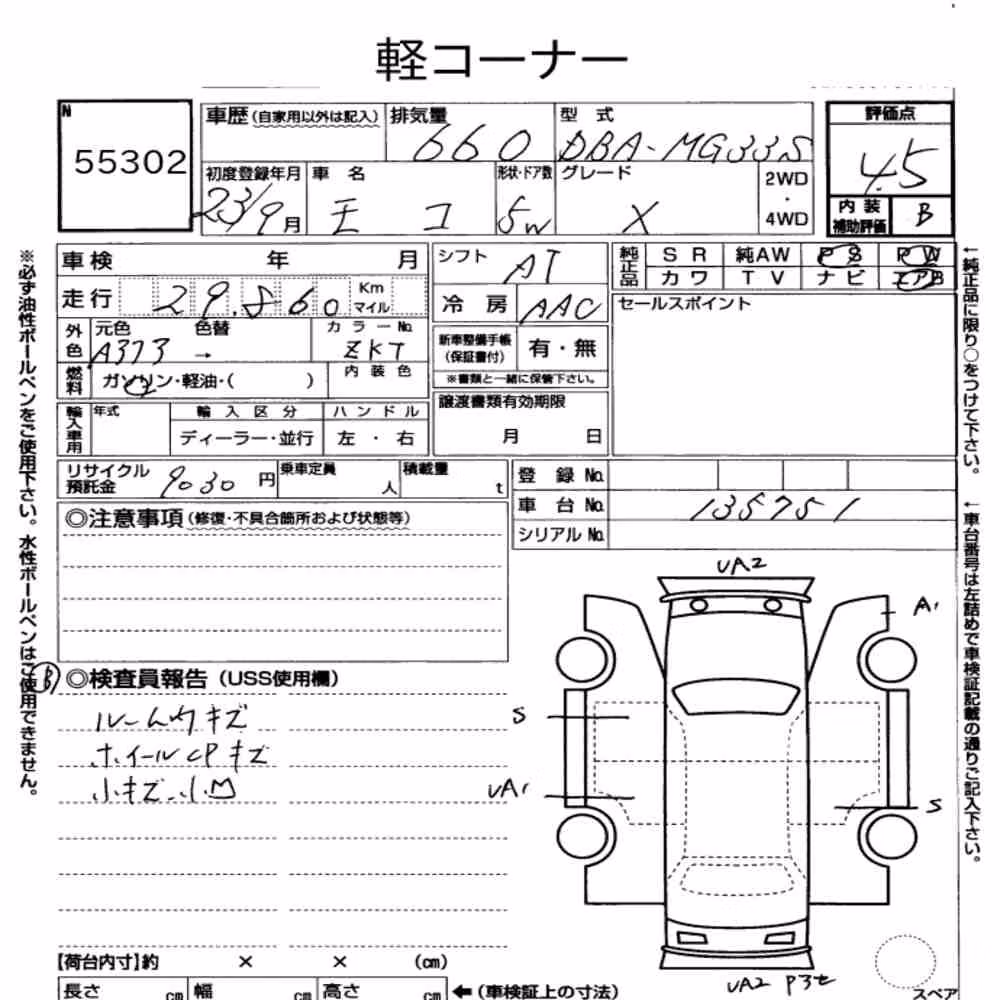 軽コーナー
N
55302
車歴(自家用以外は記入)
排気量
660
型 式
DBA-MG33S
評価点
4.5
初度登録年月
23/9月
車 名
モコ
形状・ドア数
5W
グレード
X
2WD
・
4WD
内装
補助評価
B
車検 年 月
シフト
AT
純正品
SR 純AW PS PW
カワ TV ナビ エアB
走行
29,860
Km
マイル
冷房
AAC
セールスポイント
外色
元色
A373
色替
→
カラーNo.
ZKT
新車整備手帳
(保証書付)
有・無
※書類と一緒に保管下さい。
燃料
ガソリン・軽油・( )
内装色
輸入車用
年式
輸入区分
ディーラー・並行
ハンドル
左・右
譲渡書類有効期限
月 日
リサイクル
預託金
9030円
乗車定員
人
積載量
t
登録No.
車台No.
135751
シリアルNo.
◎注意事項(修復・不具合箇所および状態等)
◎検査員報告(USS使用欄)
B
ルーム内キズ
ホイールCPキズ
小キズ、小凹
UA2
A1
S
UA1
S
UA2 P3セ
【荷台内寸】約 × × (cm)
長さ cm 幅 cm 高さ cm ←(車検証上の寸法)
スペア
※必ず油性ボールペンをご使用下さい。水性ボールペンはご使用できません。
←純正品に限り○をつけて下さい。
←車台番号は左詰めで車検証記載の通りご記入下さい。